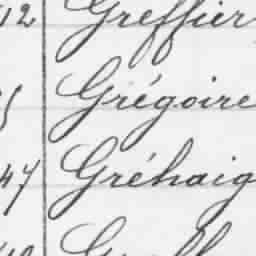 12 Greffier
Grégoire
47 Gréhaig